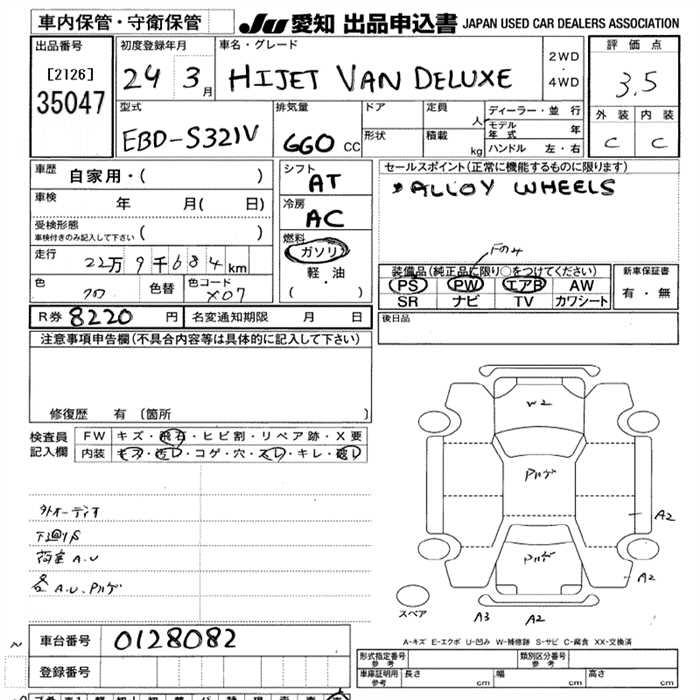 車内保管・守衛保管
JU 愛知 出品申込書 JAPAN USED CAR DEALERS ASSOCIATION
出品番号
[2126]
35047
初度登録年月
24 3月
車名・グレード
HIJET VAN DELUXE
2WD
・
4WD
評価点
3.5
外装 内装
C C
型式
EBD-S321V
排気量
660 CC
ドア
形状
定員
人
積載
kg
ディーラー・並行
モデル年式 年
ハンドル 左・右
車歴 自家用・( )
車検 年 月( 日)
受検形態
車検付きのみ記入して下さい ( )
走行 22万9千684km
色 クロ 色替 色コード X07
R券 8220 円 名変通知期限 月 日
シフト
AT
冷房
AC
燃料
ガソリン
軽・油
( )
セールスポイント(正常に機能するものに限ります)
・ALLOY WHEELS
Fのみ
装備品(純正品に限り○をつけてください)
PS PW エアB AW
SR ナビ TV カワシート
新車保証書
有・無
後日品
注意事項申告欄(不具合内容等は具体的に記入して下さい)
修復歴 有(箇所 )
検査員記入欄
FW キズ・飛石・ヒビ割・リペア跡・X要
内装 キズ・汚レ・コゲ・穴・スレ・キレ・破レ
外オーディオ
荷室 A.U
各 A.U. Pハゲ
W2
Pハゲ
Pハゲ
A2
A2
A3 A2
スペア
A-キズ E-エクボ U-凹み W-補修跡 S-サビ C-腐食 XX-交換済
車台番号 0128082
登録番号
形式指定番号 参考
類別区分番号 参考
車庫証明用 参考 長さ cm 幅 cm 高さ cm